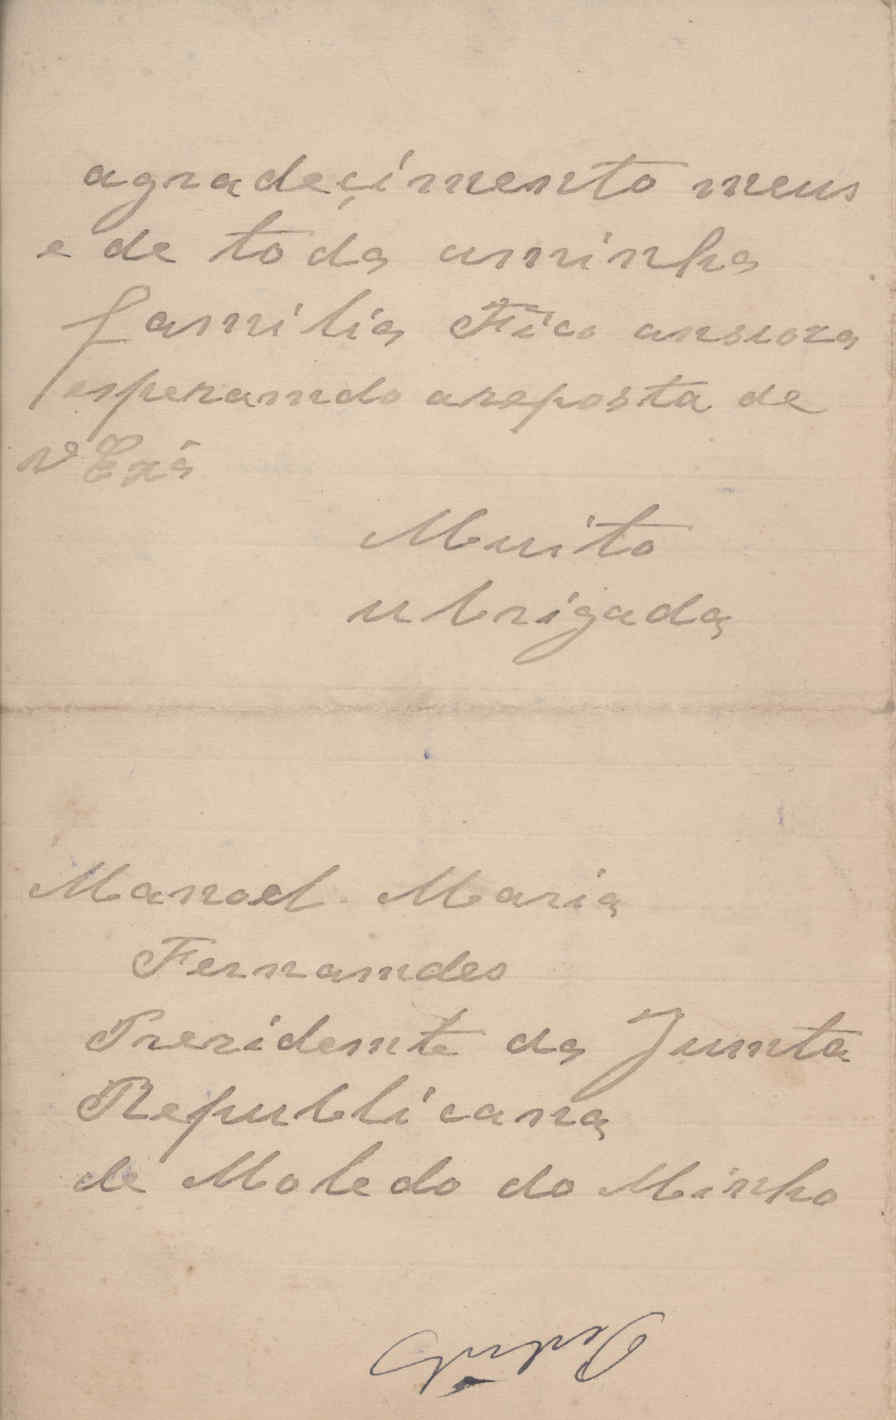 agradeçimento meus
e de toda aminha
familia Fico anscoza
esperamdo areposta de
v Exª
Muito
ubrigada
Manoel Maria
Fernamdes
Prezidemte da Jumta
Republicana
de Moledo do Minho